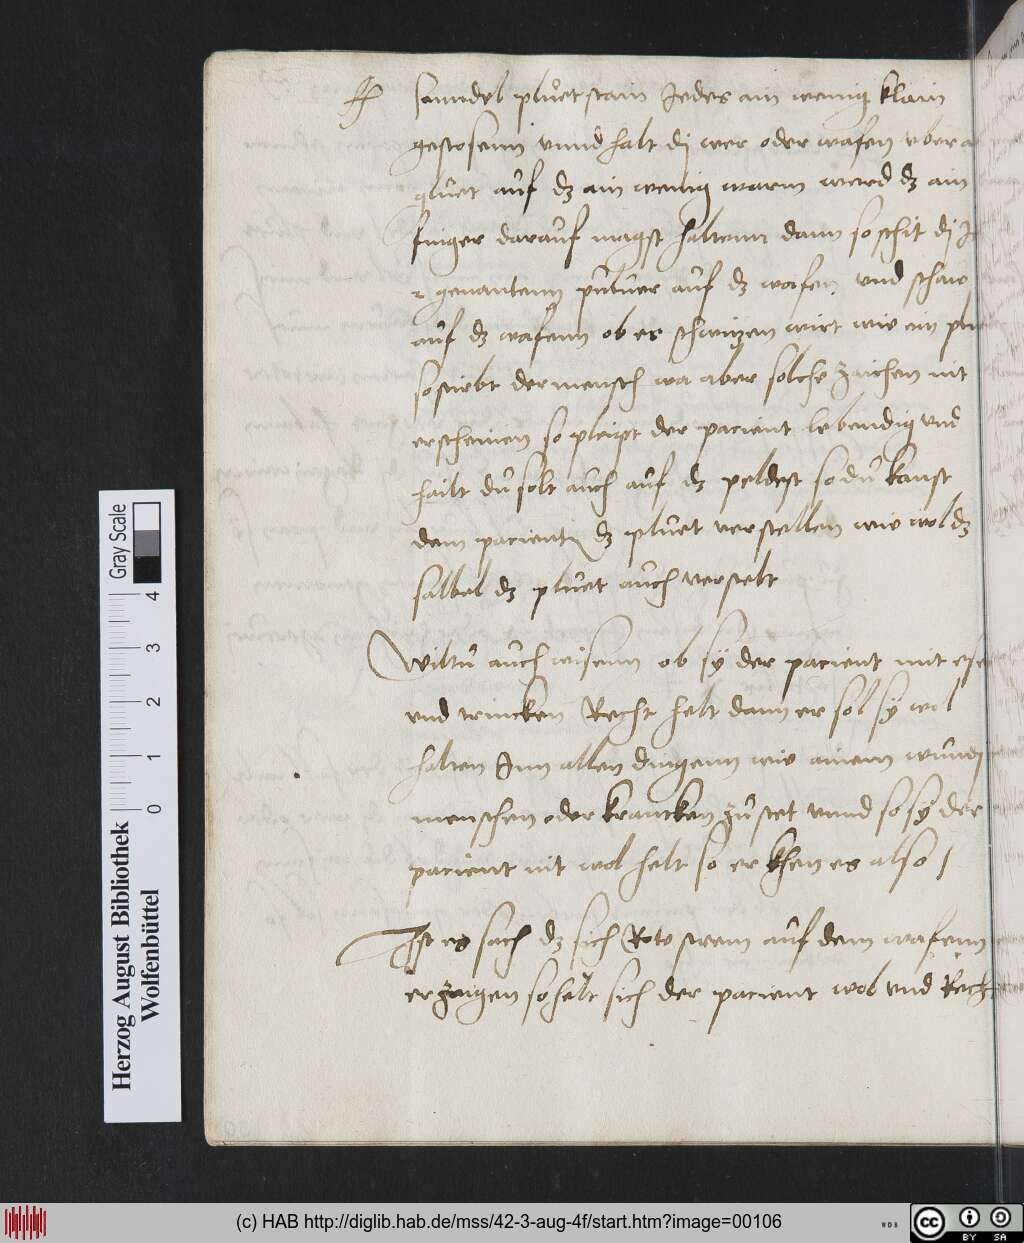 sanndel pluetstain Jedes ain wenig klain
gestosenn vnnd halt dj wer oder wafen vber a
gluet auf dz ain wenig warm werd dz ain
finger darauf magst haltenn dann so schit dj
genantenn puluer auf dz wafen vnd schaw
auf dz wafenn ob es schwitzen wirt wie ein plu
so stirbt der mensch wa aber solche zaichen nit
erscheinen so pleipt der pacient lebendig vnd
hailt du solt auch auf dz peldest so du kanst
dem pacientn dz pluet verstellen wie wol dz
salbel dz pluet auch verstelt
Wiltu auch wisenn ob sÿ der pacient mit ese
vnd trincken Recht helt dann er sol sÿ wol
halten Inn allen dingenn wie ainem wund
menschen oder krancken zu stet vnnd so sÿ der
pacient nit wol helt so erkhen es also /
Ist es sach dz sich Rote strem auf dem wafenn
erzaigen so helt sich der pacient wol vnd Recht
Herzog August Bibliothek
Wolfenbüttel
0 1 2 3 4
Gray Scale
(c) HAB http://diglib.hab.de/mss/42-3-aug-4f/start.htm?image=00106
WDB
cc BY SA